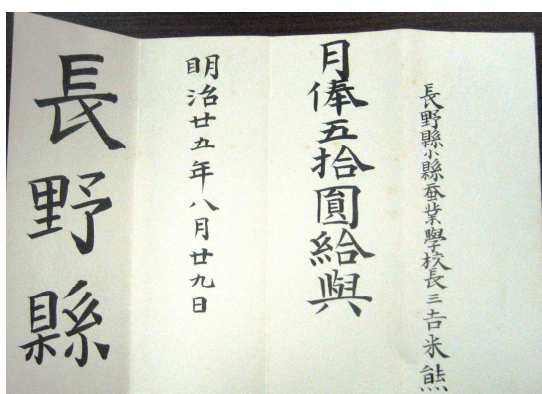 長野縣小縣蚕業學校長三吉米熊
月俸五拾圓給與
明治廿五年八月廿九日
長野縣